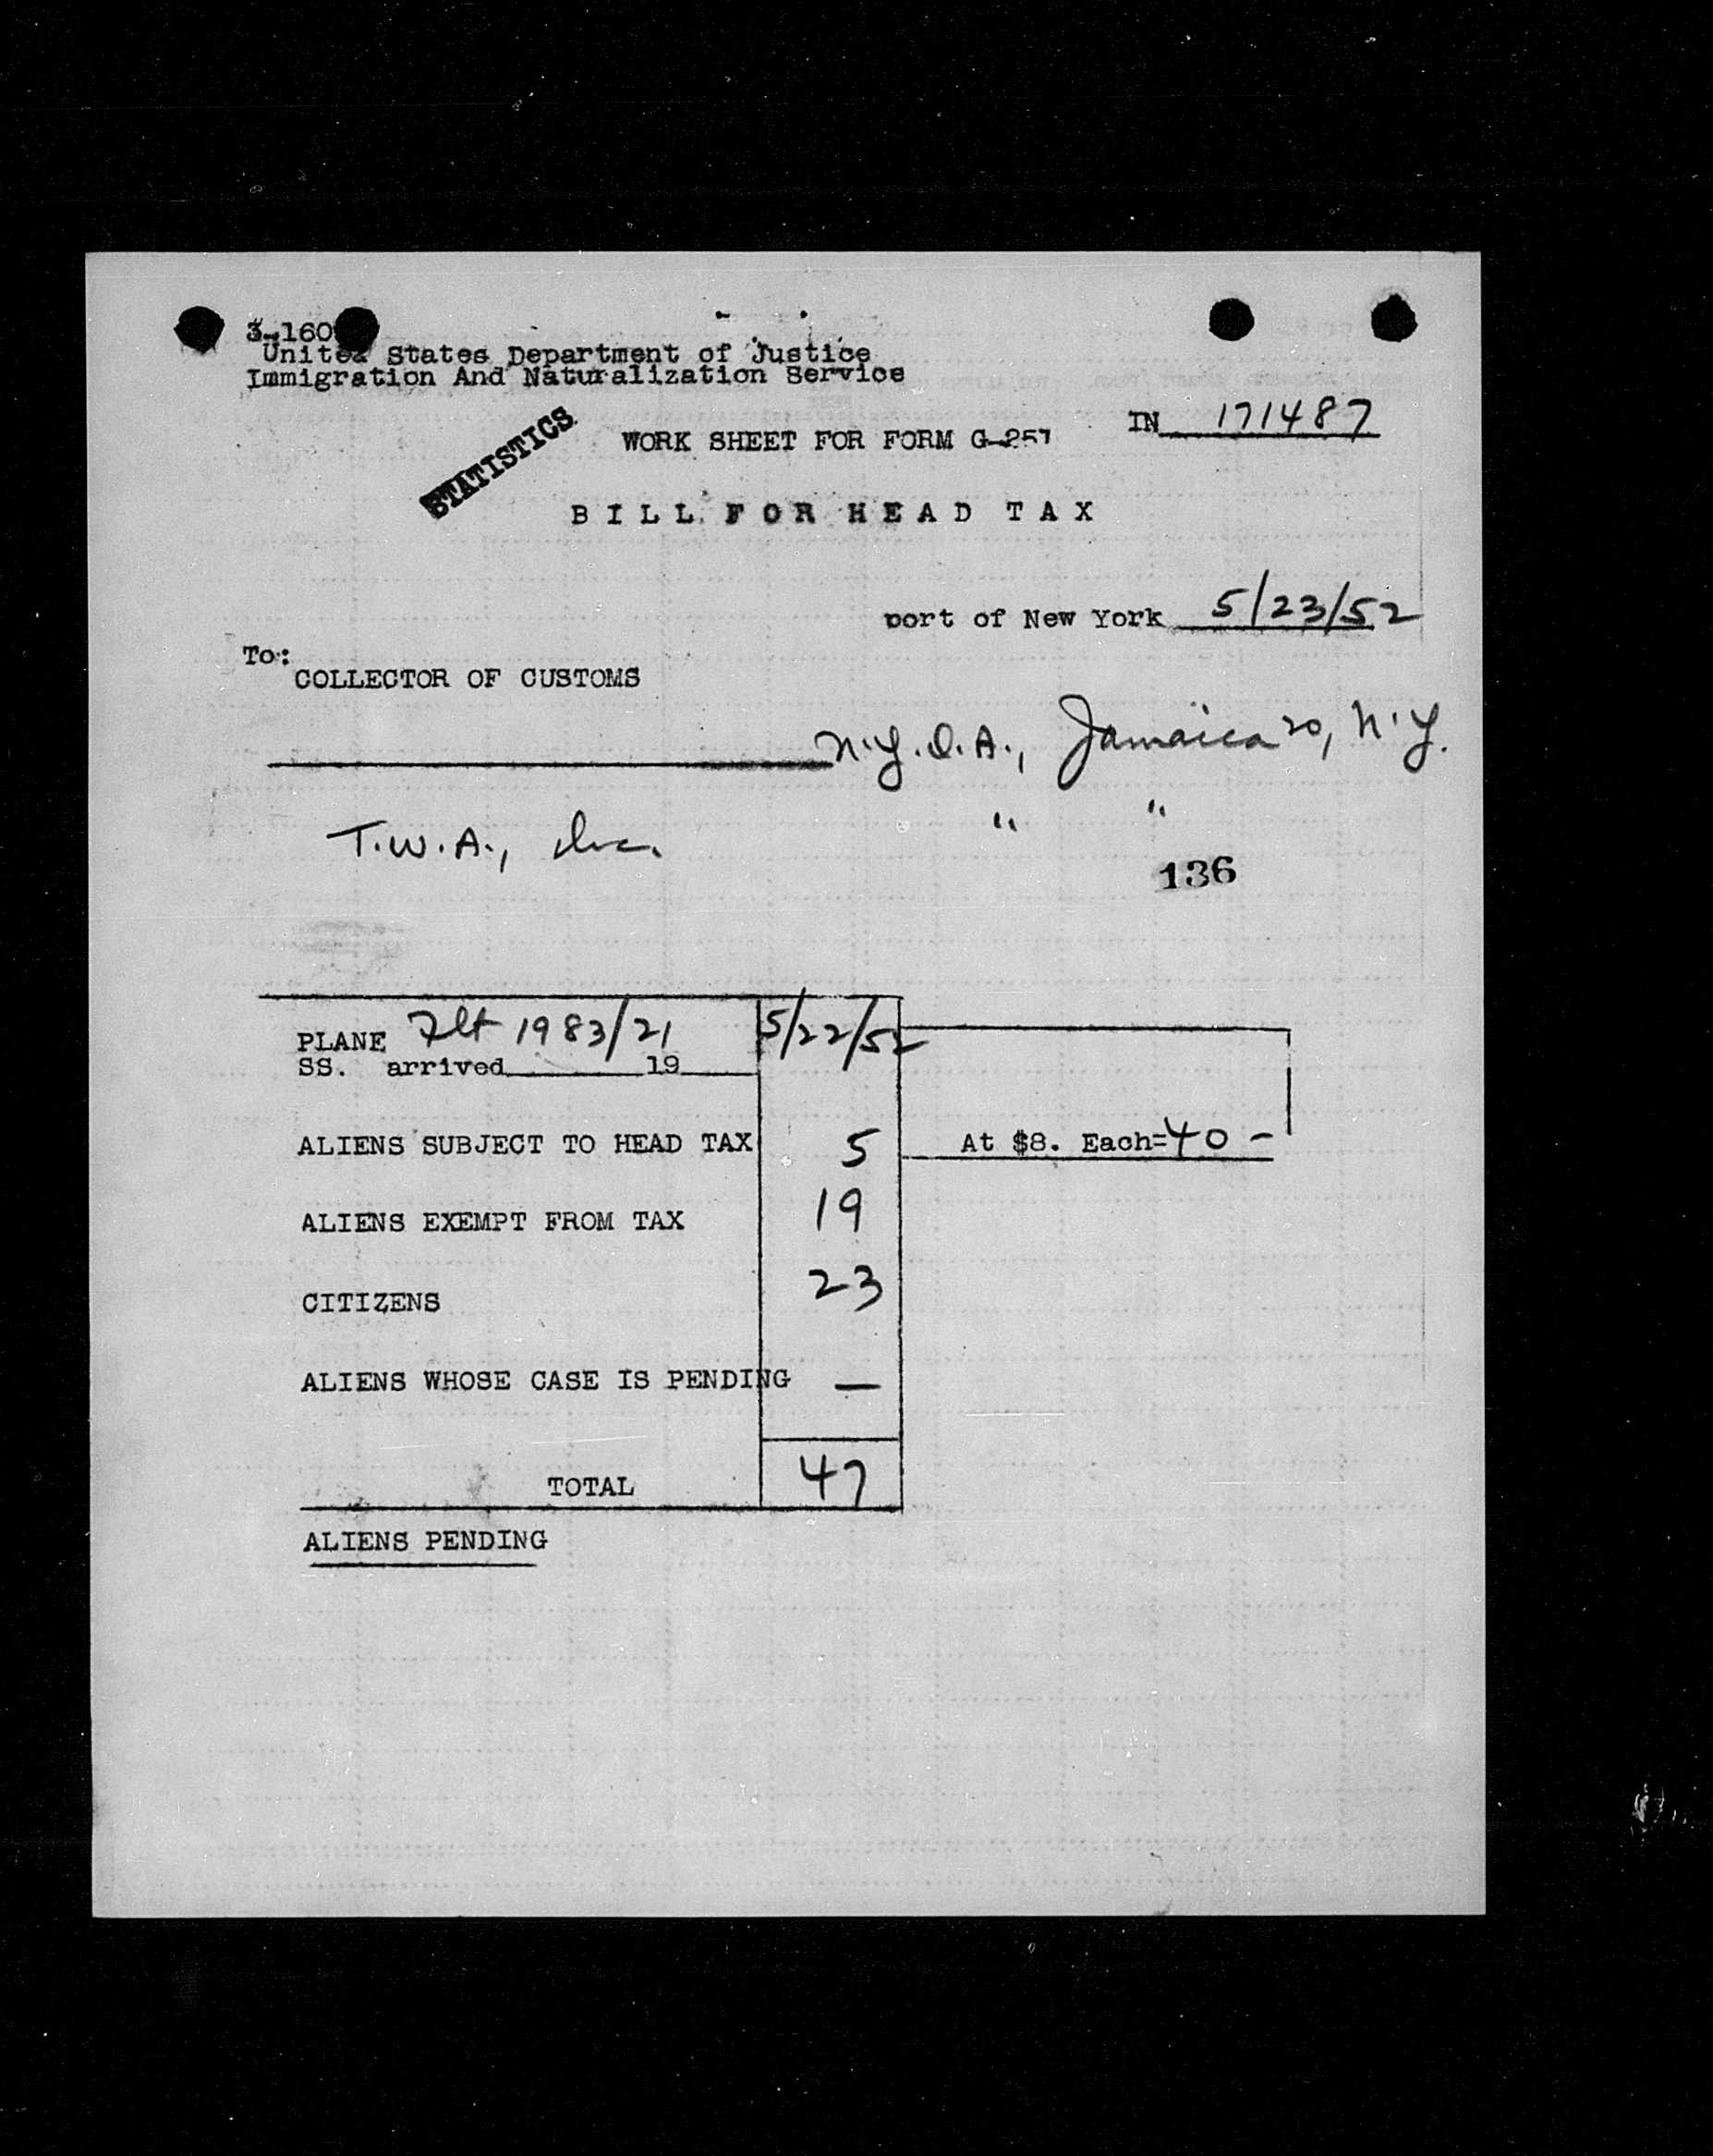 3-160
United States Department of Justice
Immigration And Naturalization Service
IN 171487
STATISTICS
WORK SHEET FOR FORM G-257
BILL FOR HEAD TAX
port of New York 5/23/52
To:
COLLECTOR OF CUSTOMS
N.Y.I.A., Jamaica 20, N.Y.
T.W.A., Inc. " "
136
PLANE Flt 1983/21 5/22/52
SS. arrived 19
ALIENS SUBJECT TO HEAD TAX 5 At $8. Each=40 -
ALIENS EXEMPT FROM TAX 19
CITIZENS 23
ALIENS WHOSE CASE IS PENDING —
TOTAL 47
ALIENS PENDING